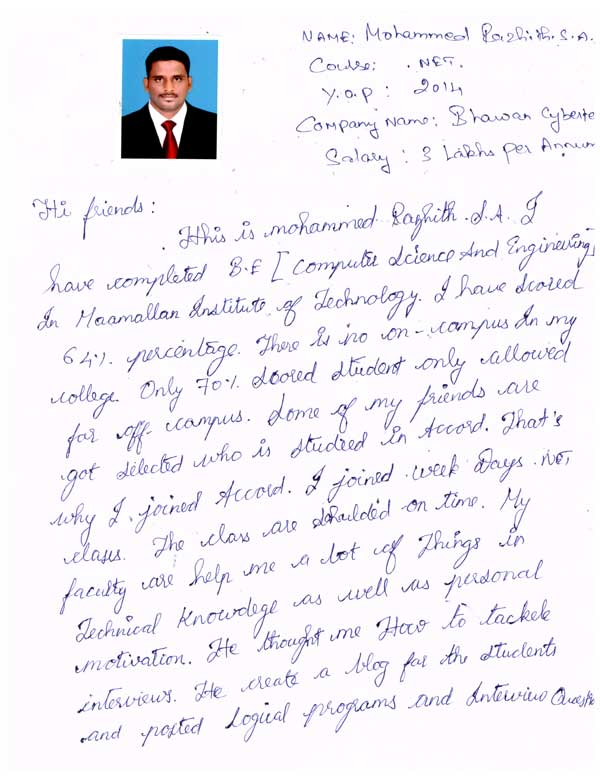 NAME: Mohammed Razhith.S.A.
Course: .NET.
Y.O.P : 2014
Company Name: Bhawan Cyberte
Salary : 3 Lakhs Per Annum
Hi friends:
. Hthis is mohammed Razhith.S.A. I
have completed B.E [Computer Science And Engineering]
In Maamallan Institute of Technology. I have scored
64%. percentage. There is no on-campus In my
college. Only 70% scored student only allowed
for off campus. Some of my friends are
got selected who is studied in Accord. That's
why I joined Accord. I joined week Days .NET
class. The class are shedulded on time. My
faculty are help me a lot of Things in
Technical Knowdege as well as personal
motivation. He thought me How to tackele
interviews. He create a blog for the students
and posted Logical programs and Interview